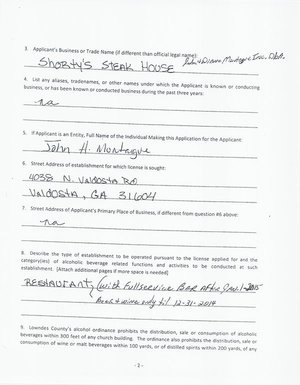 3. Applicant's Business or Trade Name (if different than official legal name)
John & Diane, Montague Inc. DBA.
SHORTY'S STEAK HOUSE
4. List any aliases, tradenames, or other names under which the Applicant is known or conducting
business, or has been known or conducted business during the past three years:
na
5. If Applicant is an Entity, Full Name of the Individual Making this Application for the Applicant:
John H. Montague
6. Street Address of establishment for which license is sought:
4038 N. Valdosta RD
Valdosta, GA 31604
7. Street Address of Applicant's Primary Place of Business, if different from question #6 above:
na
8. Describe the type of establishment to be operated pursuant to the license applied for and the
category(ies) of alcoholic beverage related functions and activities to be conducted at such
establishment. (Attach additional pages if more space is needed)
RESTAURANT, (with Fullservice BAR After Jan. 1-2015
Beer & wine only til 12-31-2014
9. Lowndes County's alcohol ordinance prohibits the distribution, sale or consumption of alcoholic
beverages within 300 feet of any church building. The ordinance also prohibits the distribution, sale or
consumption of wine or malt beverages within 100 yards, or of distilled spirits within 200 yards, of any
- 2 -